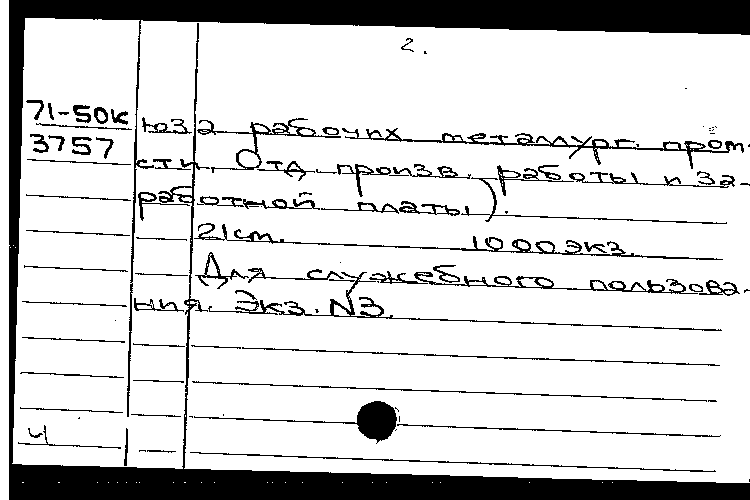 2.
71-50к
3757
юза рабочих металлург. пром-
сти. Отд. произв. работы и за-
работной платы).
21см. 1000экз.
Для служебного пользова-
ния. Экз. №3.